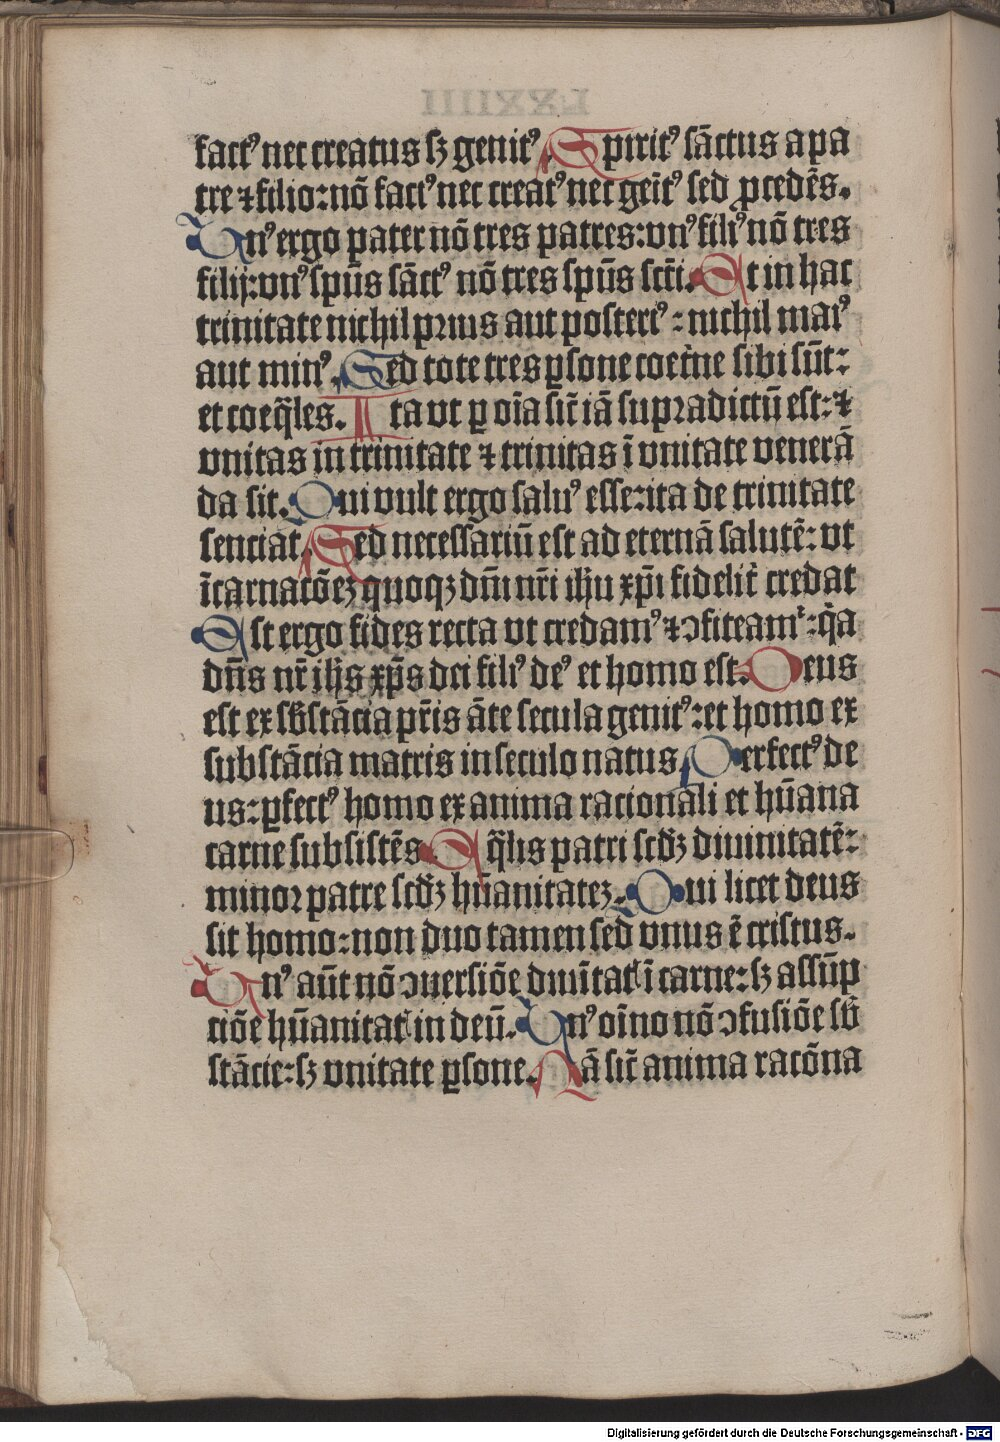 LXXIIII
factꝰ nec creatus sꝫ genitꝰ. Spiritꝰ sāctus a pa
tre ⁊ filio: nō factꝰ nec creatꝰ nec geītꝰ sed ꝓcedēs.
Unꝰ ergo pater nō tres patres: vnꝰ filiꝰ nō tres
filij: vnꝰ spūs sāctꝰ nō tres spūs scti̅. At in hac
trinitate nichil prius aut posteriꝰ: nichil maiꝰ
aut minꝰ. Sed tote tres ꝑsone coet̾ne sibi sūt:
et coeq̄les. Ita vt ꝑ oīa sic̄ iā supradictū est: ⁊
vnitas in trinitate ⁊ trinitas ī vnitate venerā
da sit. Qui vult ergo saluꝰ esse: ita de trinitate
senciat. Sed necessariū est ad eternā salutē: vt
īcarnacōeꝫ quoqꝫ dn̄i nr̄i ih̄u xp̄i fidelit̾ credat
Est ergo fides recta vt credamꝰ ⁊ ↄfiteamr̾: q̄a
dn̄s nr̄ ih̄s xp̄s dei filiꝰ deꝰ et homo est. Deus
est ex sb̄stācia pr̄is āte secula genitꝰ: et homo ex
substācia matris in seculo natus. Perfectꝰ de
us: ꝑfectꝰ homo ex anima racionali et hūana
carne subsistēs. Eq̄lis patri scd̄ꝫ diuinitatē:
minor patre scd̄ꝫ hūanitateꝫ. Qui licet deus
sit homo: non duo tamen sed vnus ē cristus.
Unꝰ aūt nō ↄuersiōe diuītatꝭ ī carne: sꝫ assūp
ciōe hūanitatꝭ in deū. Unꝰ oīno nō ↄfusiōe sb̄
stācie: sꝫ vnitate ꝑsone. Nā sic̄ anima racōna
Digitalisierung gefördert durch die Deutsche Forschungsgemeinschaft - DFG